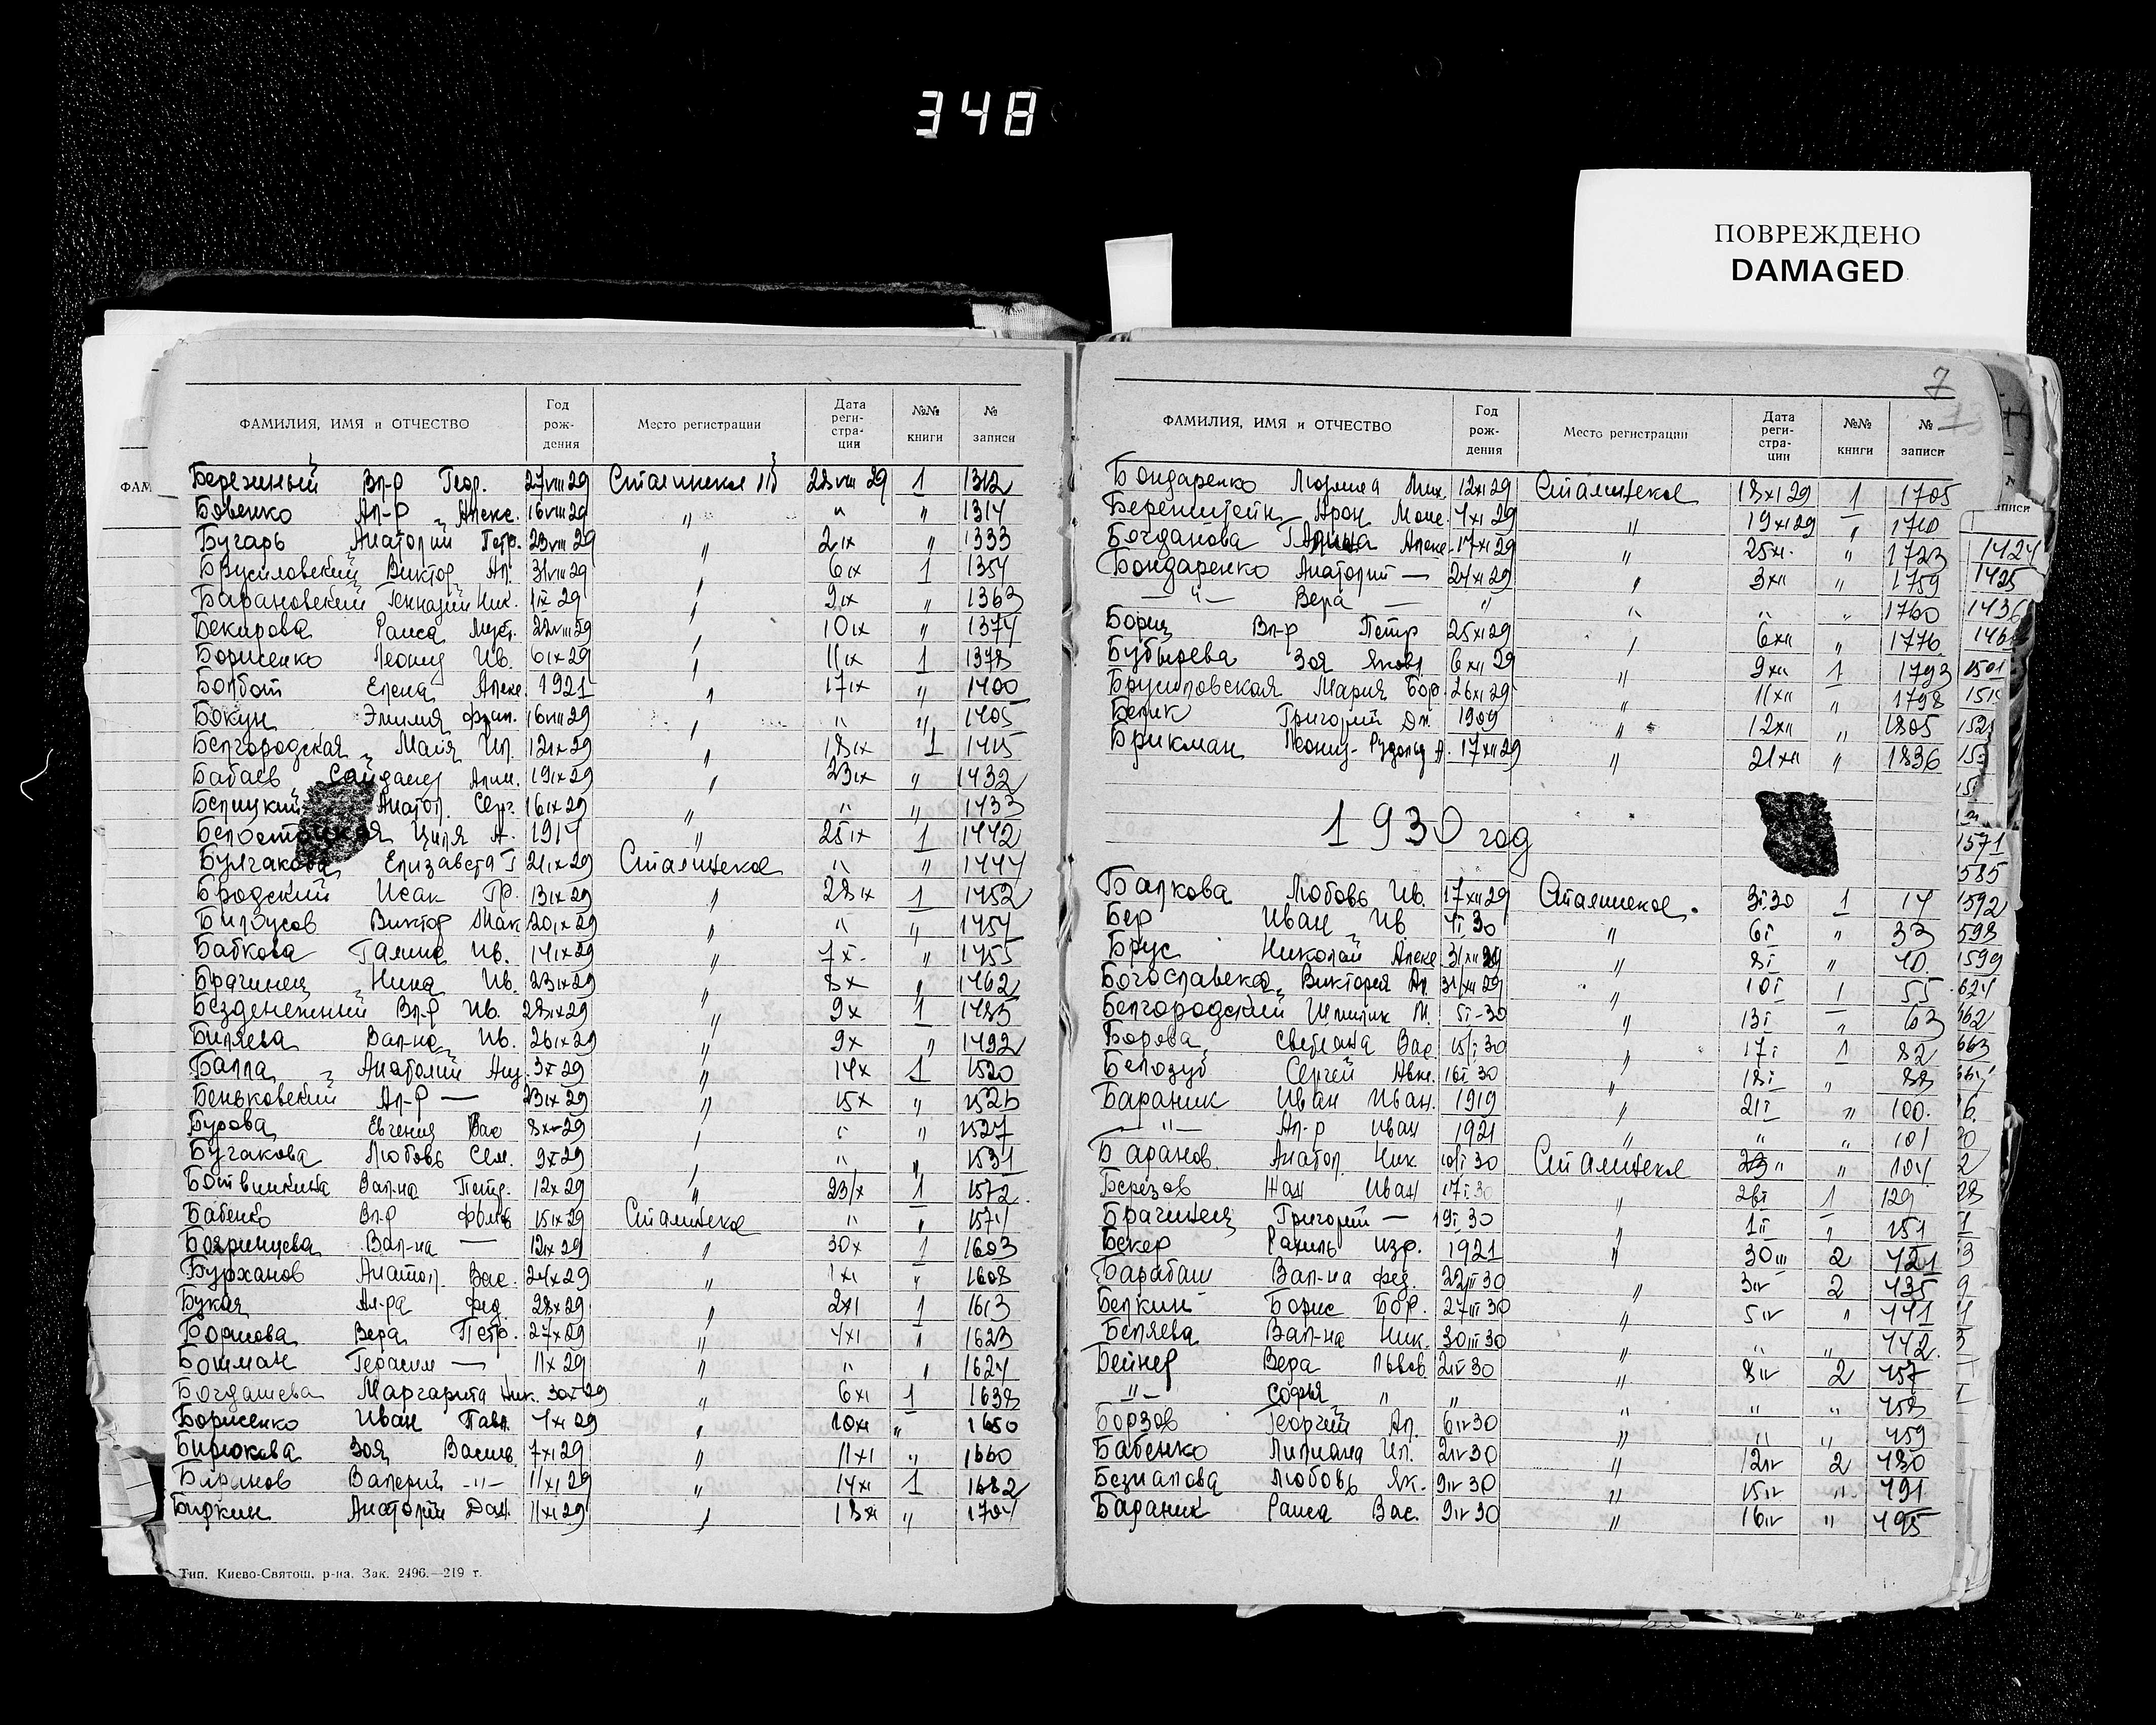 348
ПОВРЕЖДЕНО
DAMAGED
ФАМИЛИЯ, ИМЯ и ОТЧЕСТВО Год рождения Место регистрации Дата регистрации №№ книги № записи
Бережный Вл-р Геор. 27 VIII 29 Сталинское 28 VIII 29 1 1312
Бовенко Ал-р Алекс. 16 VIII 29 " " " 1314
Бугарь Анатолий Петр. 23 VIII 29 " 2 IX " 1333
Брусиловский Виктор Ал. 31 VIII 29 " 6 IX 1 1354
Барановский Геннадий Ник. 1 IX 29 " 9 IX " 1363
Бекирова Раиса Муст. 22 VIII 29 " 10 IX " 1374
Борисенко Леонид Ив. 6 IX 29 " 11 IX 1 1378
Болбот Елена Алекс. 1921 " 17 IX " 1400
Бокун Эмилия Фран. 16 VIII 29 " " " 1405
Белгородская Майя Ил. 12 IX 29 " 18 IX 1 1415
Бабаев Алим. 19 IX 29 " 23 IX " 1432
Белицкий Анатол. Серг. 16 IX 29 " " " 1433
Белостоцкая Циля А. 1914 " 25 IX 1 1442
Булгакова Елизавета Г 21 IX 29 Сталинское " " 1444
Бродский Исак Гр. 13 IX 29 " 28 IX 1 1452
Билоусов Виктор Мак. 20 IX 29 " " " 1454
Бабкова Галина Ив. 14 IX 29 " 7 X " 1455
Брагинец Нина Ив. 23 IX 29 " 8 X " 1462
Безденежный Вл-р Ив. 28 IX 29 " 9 X 1 1485
Биляева Вал-на Ив. 26 IX 29 " 9 X " 1492
Балла Анатолий Анд. 3 X 29 " 14 X 1 1520
Беньковский Ал-р — 23 IX 29 " 15 X " 1525
Бурова Евгения Вас 8 X 29 " " " 1527
Бугакова Любовь Сем. 9 X 29 " " " 1531
Ботвинкина Вал-на Петр. 12 X 29 " 23 X 1 1572
Бабенко Вл-р 15 IX 29 Сталинское " " 1574
Бояринцева Вал-на — 12 X 29 " 30 X 1 1603
Бурханов Анатол. Вас. 24 X 29 " 1 XI " 1608
Букая Ал-ра Фед. 28 X 29 " 2 XI 1 1613
Борисова Вера Петр. 27 X 29 " 4 XI " 1623
Бошман Герасим — 11 X 29 " " " 1624
Богдашева Маргарита Ник. 30 X 29 " 6 XI 1 1638
Борисенко Иван Павл. 4 XI 29 " 10 XI " 1650
Бирюкова Зоя Василь. 7 XI 29 " 11 XI " 1660
Валерий -"- 11 XI 29 " 14 XI 1 1682
Анатолий Дан. 11 XI 29 " 18 XI " 1704
Тип. Киево-Святош. р-на. Зак. 2496.—219 т.
7
ФАМИЛИЯ, ИМЯ и ОТЧЕСТВО Год рождения Место регистрации Дата регистрации №№ книги № записи
Бондаренко Людмила Мих. 12 XI 29 Сталинское 18 XI 29 1 1705
Беренштейн Арон Моис. 4 XI 29 " 19 XI 29 " 1710
Богданова Галина Алекс. 17 XI 29 " 25 XI. " 1723
Бондаренко Анатолий — 24 XI 29 " 3 XII " 1759
—"— Вера — " " " " 1760
Бориц Вл-р Петр 25 XI 29 " 6 XII " 1776
Бубырева Зоя Яковл 6 XII 29 " 9 XII 1 1793
Брусиловская Мария Бор. 26 XI 29 " 11 XII " 1798
Белик Григорий Дм. 1909 " 12 XII " 1805
Брикман Леонид-Рудольф А. 17 XII 29 " 21 XII " 1836
1930 год
Балкова Любовь Ив. 17 XII 29 Сталинское 3 I 30 1 14
Бер Иван Ив 4 I 30 " 6 I " 33
Брус Николай Алекс 31 XII 29 " 8 I " 40.
Богославска Виктория Ал. 31/XII 29 " 10 I 1 55
Белгородский М. 5 I-30 " 13 I " 63
Борова Светлана Вас 15/I 30 " 17 I 1 82
Белозуб Сергей 16 I 30 " 18 I " 88
Бараник Иван Иван. 1919 " 21 I " 100.
—"— Ал-р Иван 1921 " " " 101
Баранов Анатол. Ник 10/I 30 Сталинское 23 " " 104
Березов Жан Иван 17 I 30 " 26 I 1 129
Брагинец Григорий — 19 I 30 " 1 II " 151
Бекер Рахиль Изр. 1921 " 30 III 2 421
Барабаш Вал-на Фед. 22 III 30 " 3 IV 2 435
Белкин Борис Бор. 27 III 30 " 5 IV " 441
Беляева Вал-на Ник. 30 III 30 " " " 442.
Бейнер Вера Львов 2 IV 30 " 8 IV 2 457
"— Софья " " " " " 458
Борзов Георгий Ал. 6 IV 30 " " " 459
Бабенко Лилиана Ил. 2 IV 30 " 12 IV 2 480
Безнапова Любовь Як. 9 IV 30 " 15 IV " 491
Бараник Раиса Вас. 9 IV 30 " 16 IV " 495
ФАМ
1424
1425
1501
1571
1585
1592